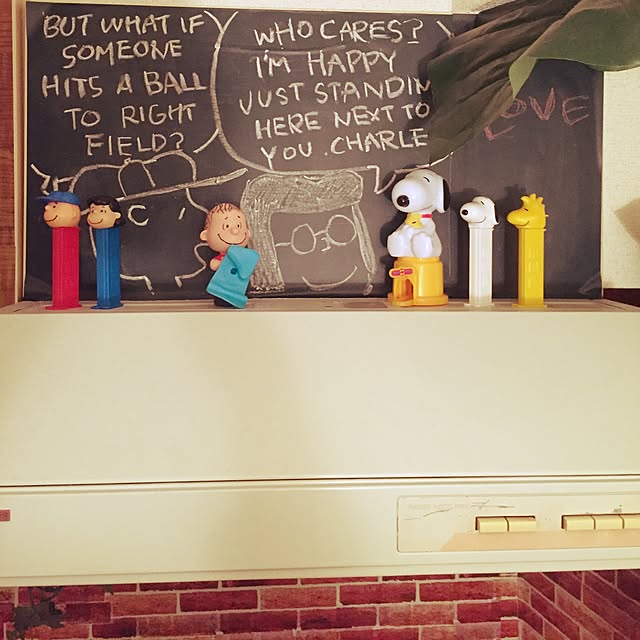 BUT WHAT IF
SOMEONE
HITS A BALL
TO RIGHT
FIELD?
WHO CARES?
I'M HAPPY
JUST STANDIN
HERE NEXT TO
YOU. CHARLE
LOVE
C